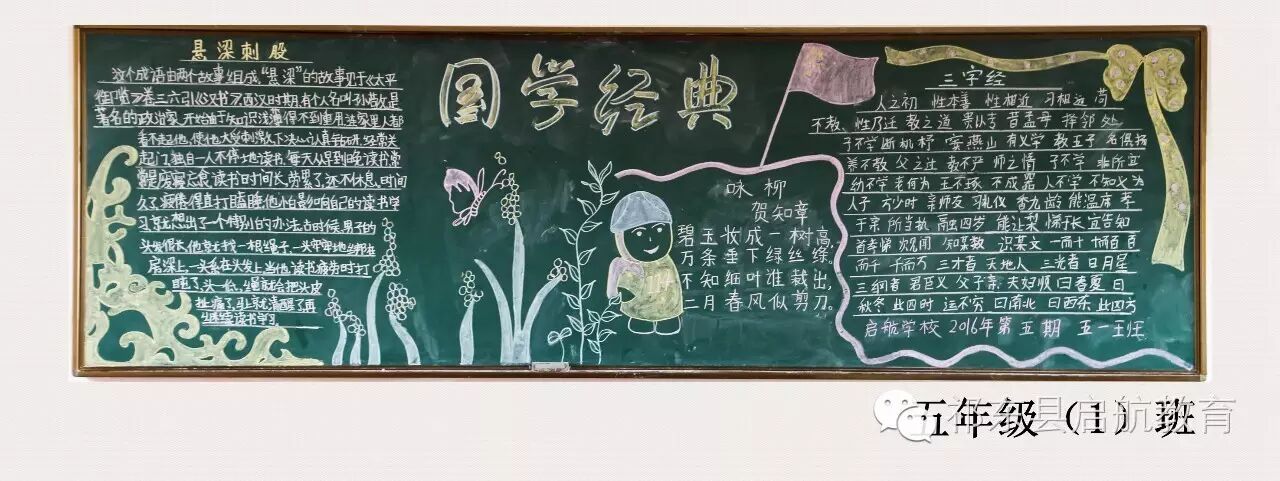 悬梁刺股
这个成语由两个故事组成“悬梁”的故事见于《太平
御览》卷三六引《汉书》西汉时期有个人叫孙敬是
著名的政治家,开始由于知识浅薄得不到重用连家里人都
看不起他,使他大受刺激,下决心认真钻研,经常关
起门,独自一人不停地读书,每天从早到晚读书常
常是废寝忘食,读书时间长,劳累了,还不休息,时间
久了,疲倦得直打瞌睡,他怕影响自己的读书学
习就想出了个特别的办法古时候男子的
头发很长他就找一根绳子,一头牢牢地绑在
房梁上,一头系在头发上当他读书疲劳时打
盹了,头一低,绳就会把头皮
扯痛了,就清醒了再
继续读书学习
国学经典
咏柳
贺知章
碧玉妆成一树高,
万条垂下绿丝绦。
不知细叶谁裁出,
二月春风似剪刀。
三字经
人之初 性本善 性相近 习相远 苟
不教、性乃迁 教之道 贵以专 昔孟母 择邻处
子不学 断机杼 窦燕山 有义学 教五子 名俱扬
养不教 父之过 教不严 师之惰 子不学 非所宜
幼不学 老何为 玉不琢 不成器 人不学 不知义 为
人子 方少时 亲师友 习礼仪 香九龄 能温席 孝
于亲 所当执 融四岁 能让梨 悌于长 宜先知
首孝弟 次见闻 知某数 识某文 一而十 十而百 百
而千 千而万 三才者 天地人 三光者 日月星
三纲者 君臣义 父子亲 夫妇顺 曰春夏 曰
秋冬 此四时 运不穷 曰南北 曰西东 此四方
启航学校 2016年第五期 五一班
五年级(1)班
祁东县启航教育